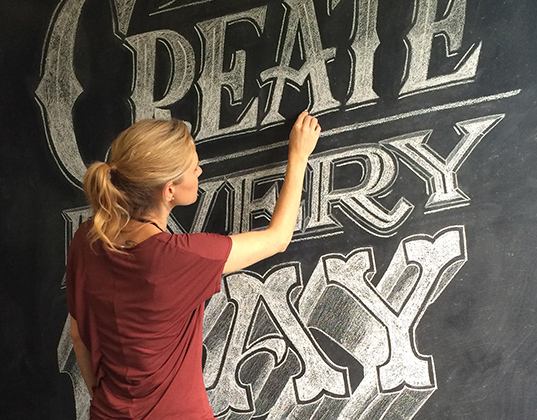 CREATE
EVERY
DAY